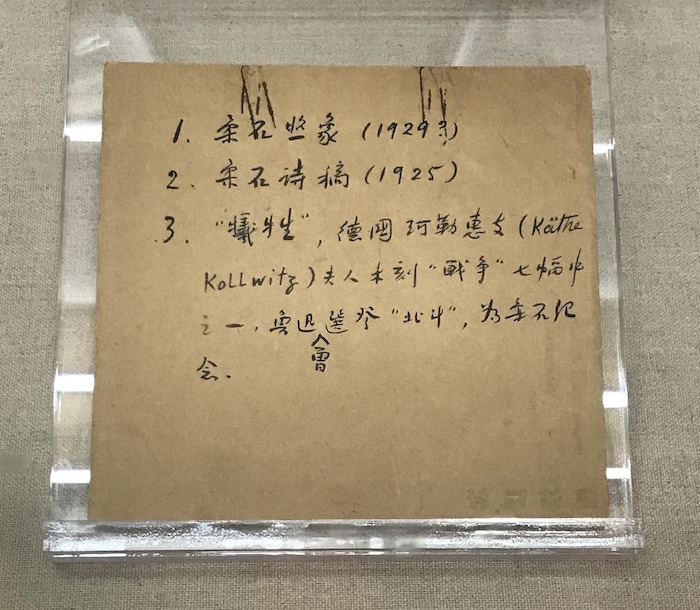 1. 柔石照象(1929?)
2. 柔石诗稿(1925)
3. "犧牲", 德國 珂勒惠支(Käthe
Kollwitz)夫人木刻"戰争"七幅中
之一, 魯迅曾選登"北斗", 为柔石纪
念.